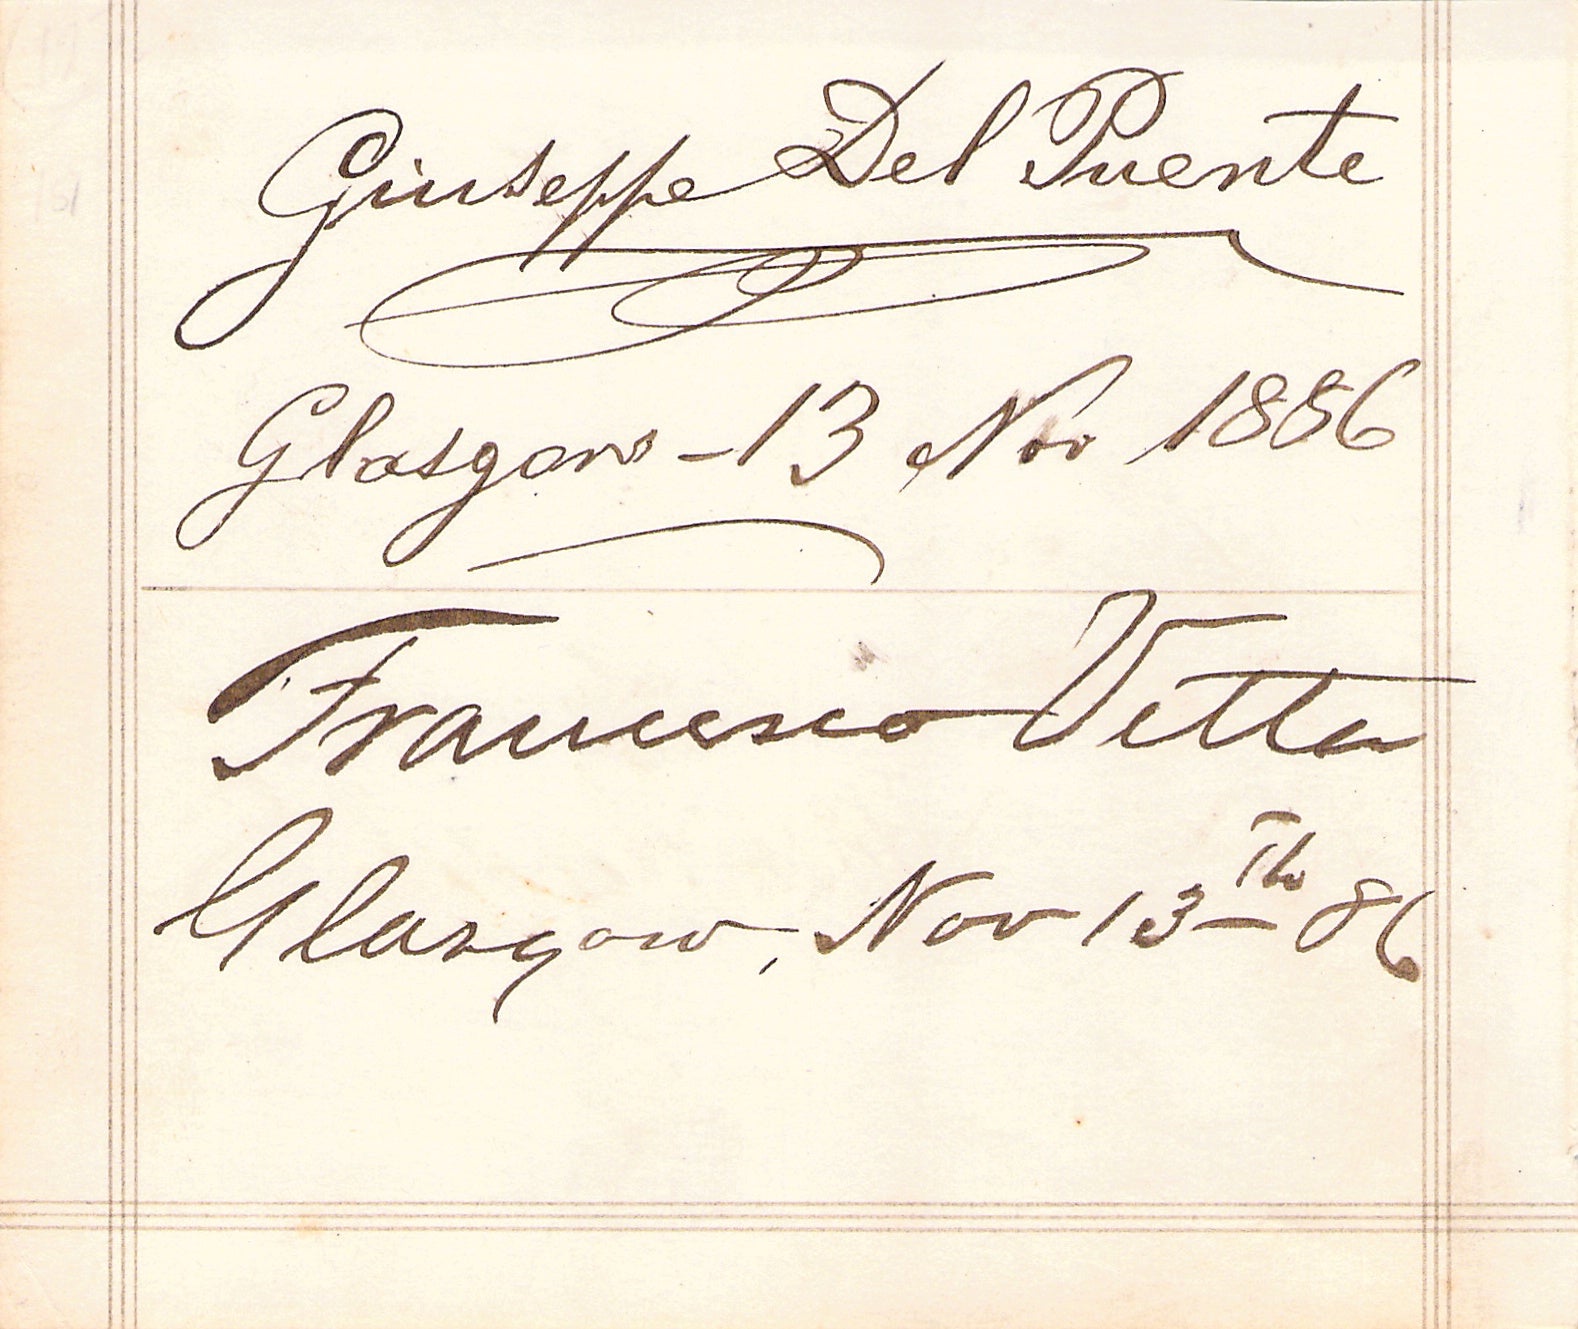 Giuseppe Del Puente
Glasgow - 13 Nov 1886
Francesco Vetta
Glasgow, Nov 13th 86